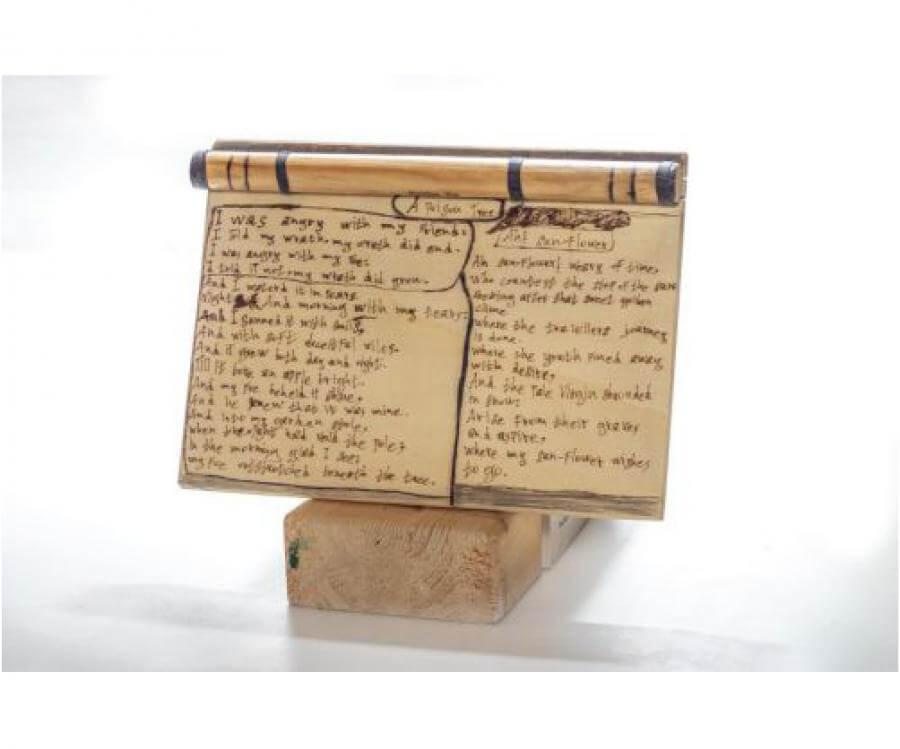 A Poison Tree
I was angry with my friend:
I told my wrath, my wrath did end.
I was angry with my foe:
I told it not, my wrath did grow.
And I waterd it in fears
Night And morning with my tears:
And I sunned it with smiles
And with soft deceitful wiles.
And it grew both day and night.
Till it bore an apple bright.
And my foe beheld it shine,
And he knew that it was mine.
And into my garden stole,
when the night had veild the pole;
In the morning glad I see;
my foe outstretched beneath the tree.
Ah! Sun-Flower
Ah Sun-flower! weary of time,
Who countest the steps of the sun:
Seeking after that sweet golden
clime
where the travellers journey
is done.
Where the youth pined away
with desire,
And the Pale Virgin shrouded
in snow:
Arise from their graves
and aspire,
where my Sun-flower wishes
to go.